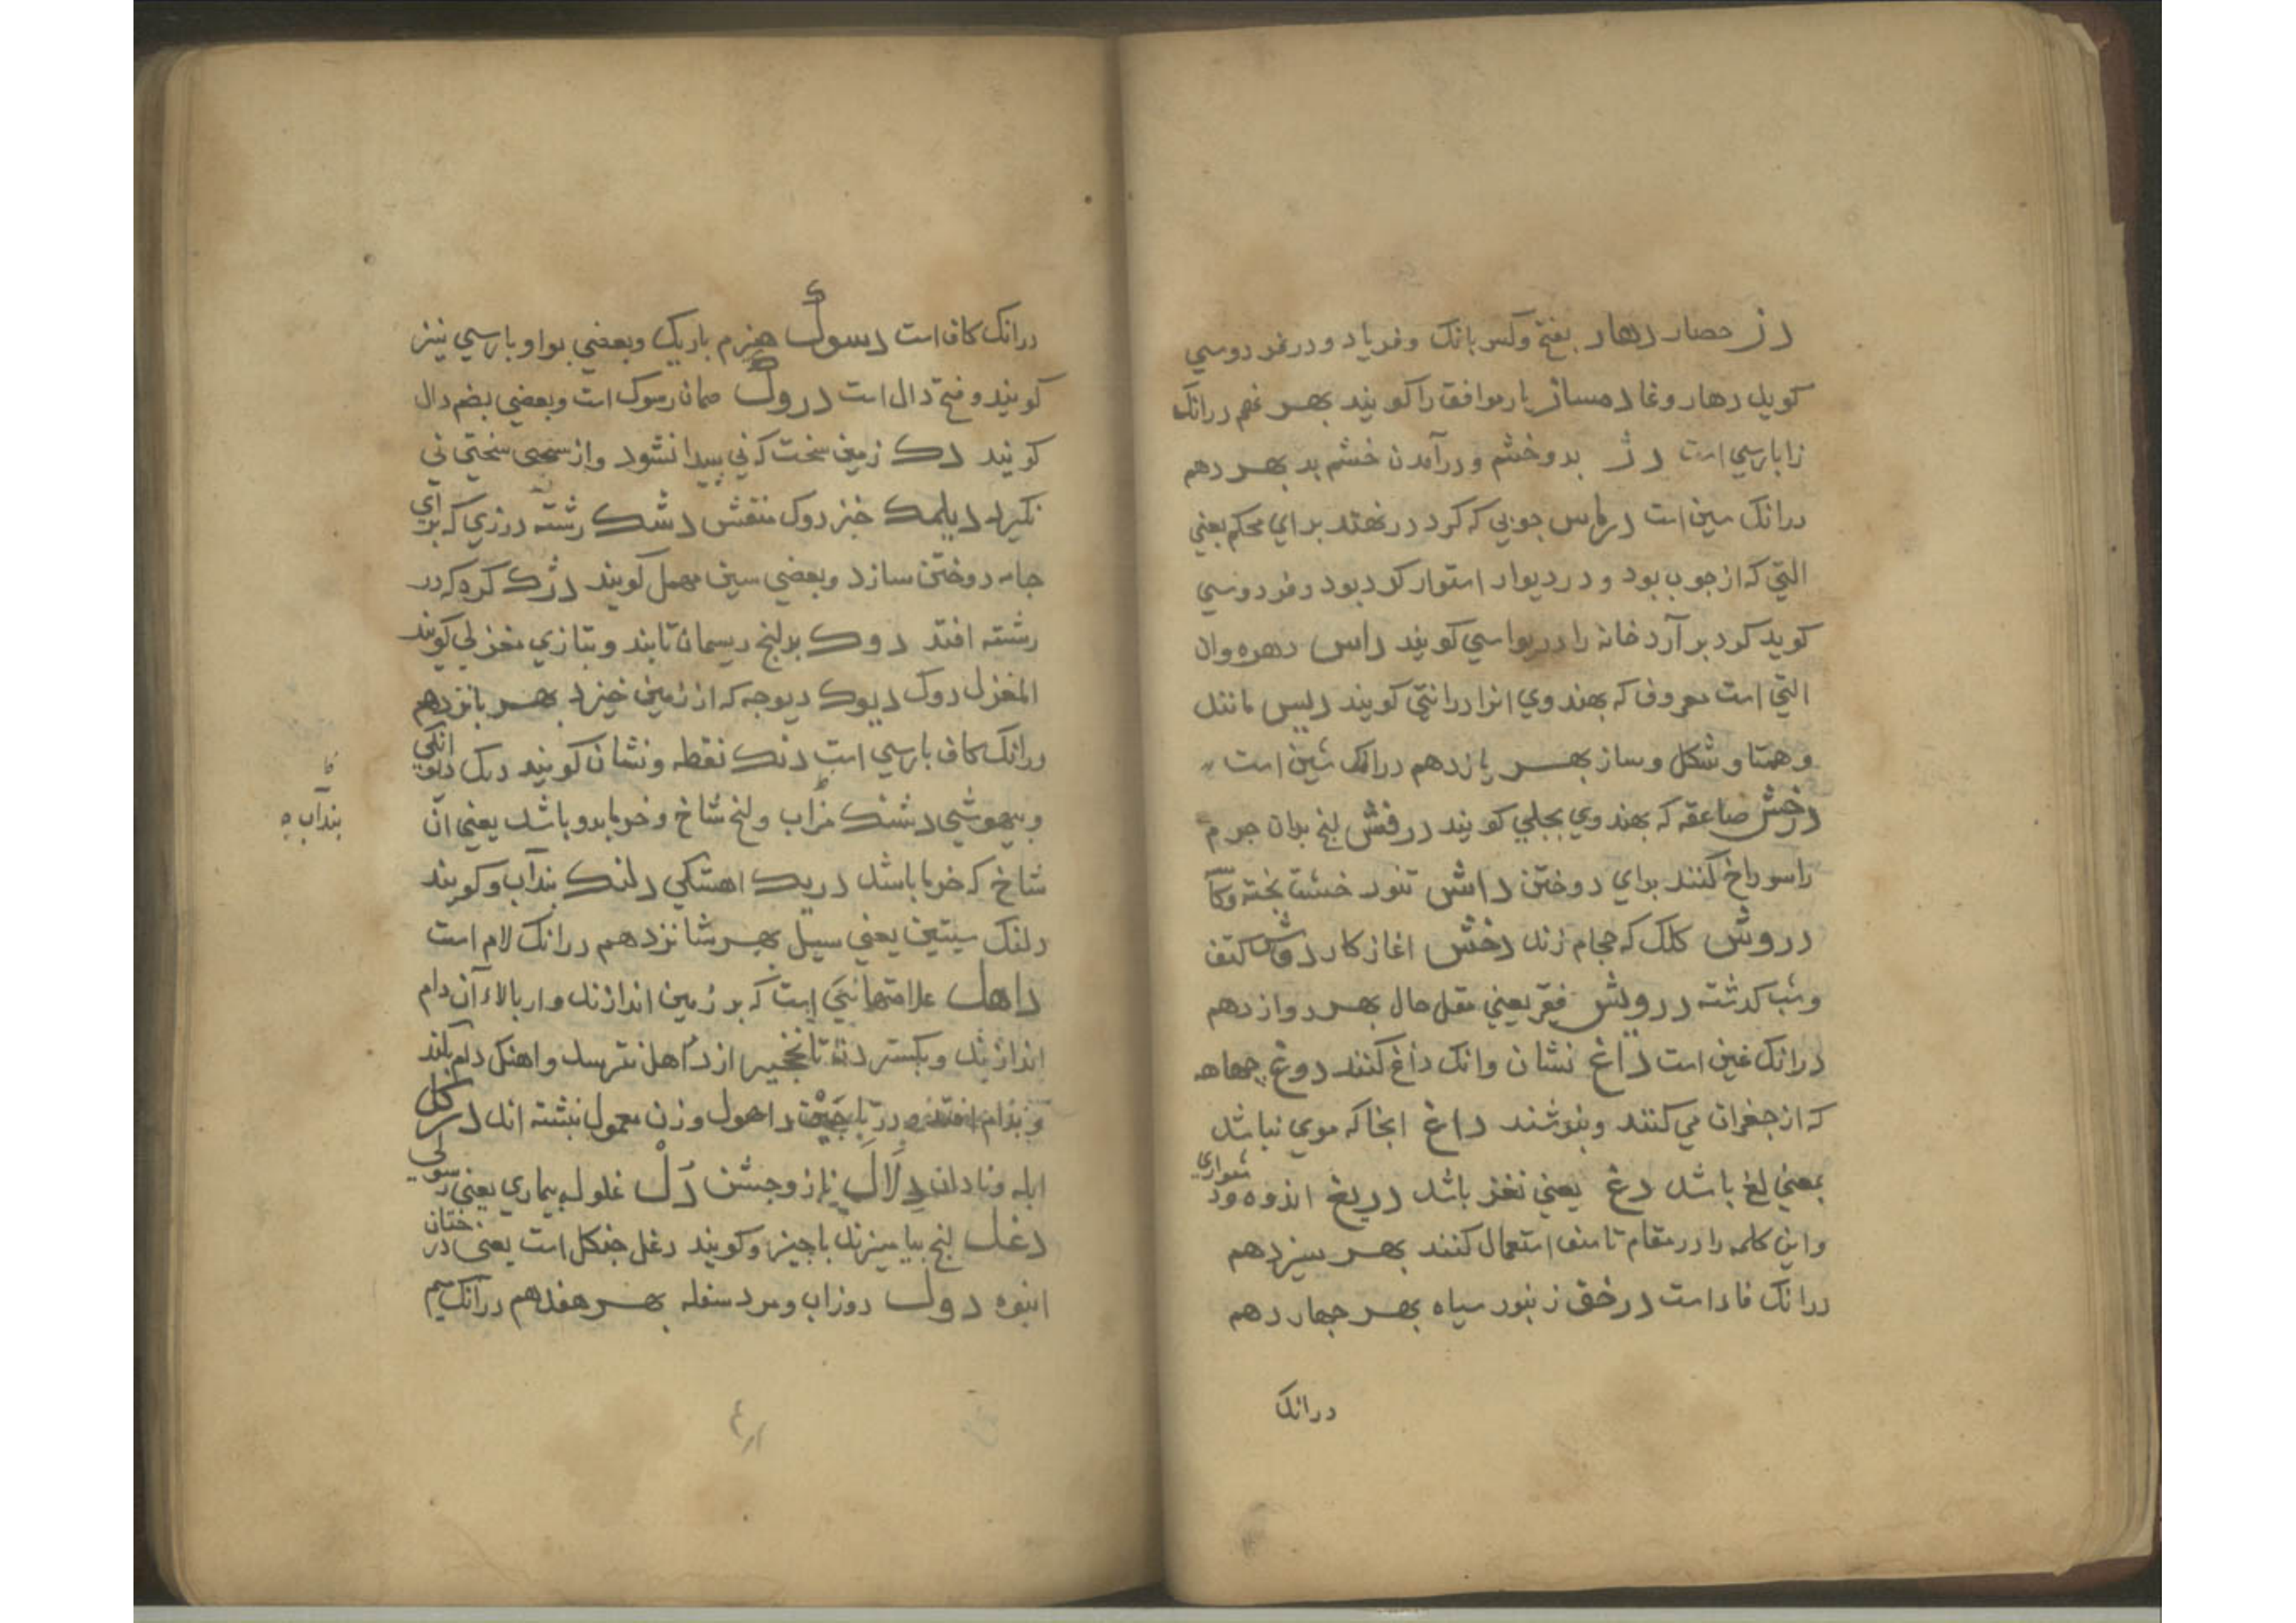 دز حصار دهار بفتح وکسر بانک وفریاد ودر فردوسي
کوید دهار وغا دمساز یار موافق را کویند بهر نهم درانک
زا بارسي است دژ بد وخشم ودرآمدن خشم بد بهر دهم
درانک سین است درواس جوبي که کرد در نهند براي محکم یعني
التي که از جوب بود ودر دیوار استوار کرد بود وفردوسي
کوید کرد بر آرد خانه را دریواسي کویند داس دهره وان
التي است معروف که بهندوي انرا درانتي کویند دیس مانند
وهمتا وشکل وساز بهر یازدهم درانک شین است
درخش صاعقه که بهندوي بجلي کویند درفش لنج بدان جرم
را سوراخ کنند براي دوختن داش تنور خشت بخته
دروش کلک که حجام زند دخش اغاز کار دوش کتف
وشب کدشته درویش فقر یعني مقل حال بهر دوازدهم
درانک غین است داغ نشان وانک داغ کنند دوغ
که از جغرات مي کنند وبنوشند داغ انجا که موي نباشد
بمعني لغ باشد دغ یعني نغز باشد دریغ اندوه ودشواري
واین کلمه را در مقام تاسف استعمال کنند بهر سیزدهم
درانک فا داست درخق زنبور سیاه بهر جهاردهم
درانک
درانک کاف است دسوک هیزم باریک وبعضي بواو بارسي نیز
کویند وفتح دال است دروک همان دسوک است وبعضي بضم دال
کویند دک زمین سخت که ني بیدا نشود واز سختي ني
نکیرد دیلمک خبزدوک منقش دشک رشته درزي که براي
جامه دوختن سازد وبعضي سین مهمل کویند دژک کره که در
رشته افتد دوک بدلنج ریسمان تابند وبتازي مغزلي کویند
المغزل دوک دیوک دیوجه که از زمین خیزد بهر بانزدهم
درانک کاف بارسي است دنک نقطه ونشان کویند دنک دیوانکي
وبیهوشي دشنک ولنج شاخ وخرما بدو باشد یعني آن
بنداب
شاخ که خرما باشد درنک اهستکي دلنک بنداب وکویند
دلنک سیتین یعني سیل بهر شانزدهم درانک لام است
داهل علامتهائي است که بر زمین اندازند وار بالاء آن دام
اندازند وبکستردند تا نخجیر از داهل نترسد واهنک دام کند
وبدام افتد ودر داهول وزن معمول نبشته اند دکل
ابله ونادان دلال ناز وجشن دل غلوله بیماري یعني رسولي
دغل لنج بیامیزند باجیز وکویند دغل جنکل است یعني درختان
انبوه دول دوزاب ومرد سفله بهر هفدهم درانک میم